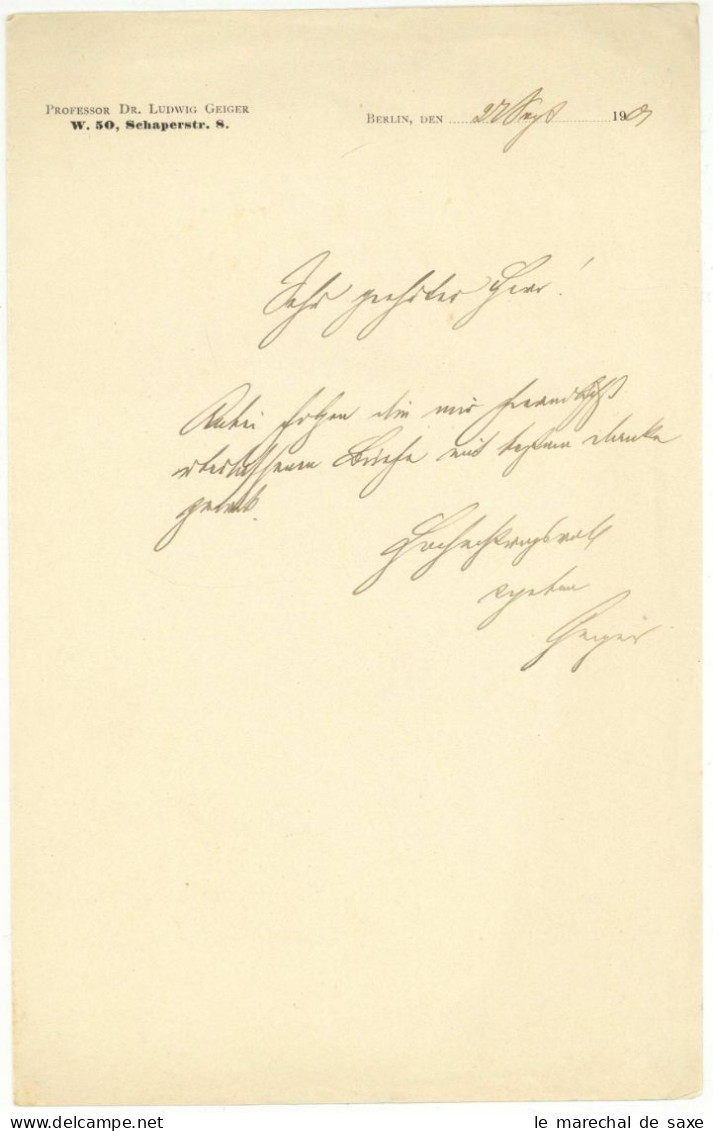 PROFESSOR DR. LUDWIG GEIGER
W. 50, Schaperstr. 8.
BERLIN, DEN 27 Sept 190
Sehr geehrter Herr!
Anbei folgen die mir freundlichst
überlassenen Briefe mit bestem Danke
zurück
Hochachtungsvoll
ergeben
Geiger
le marechal de saxe